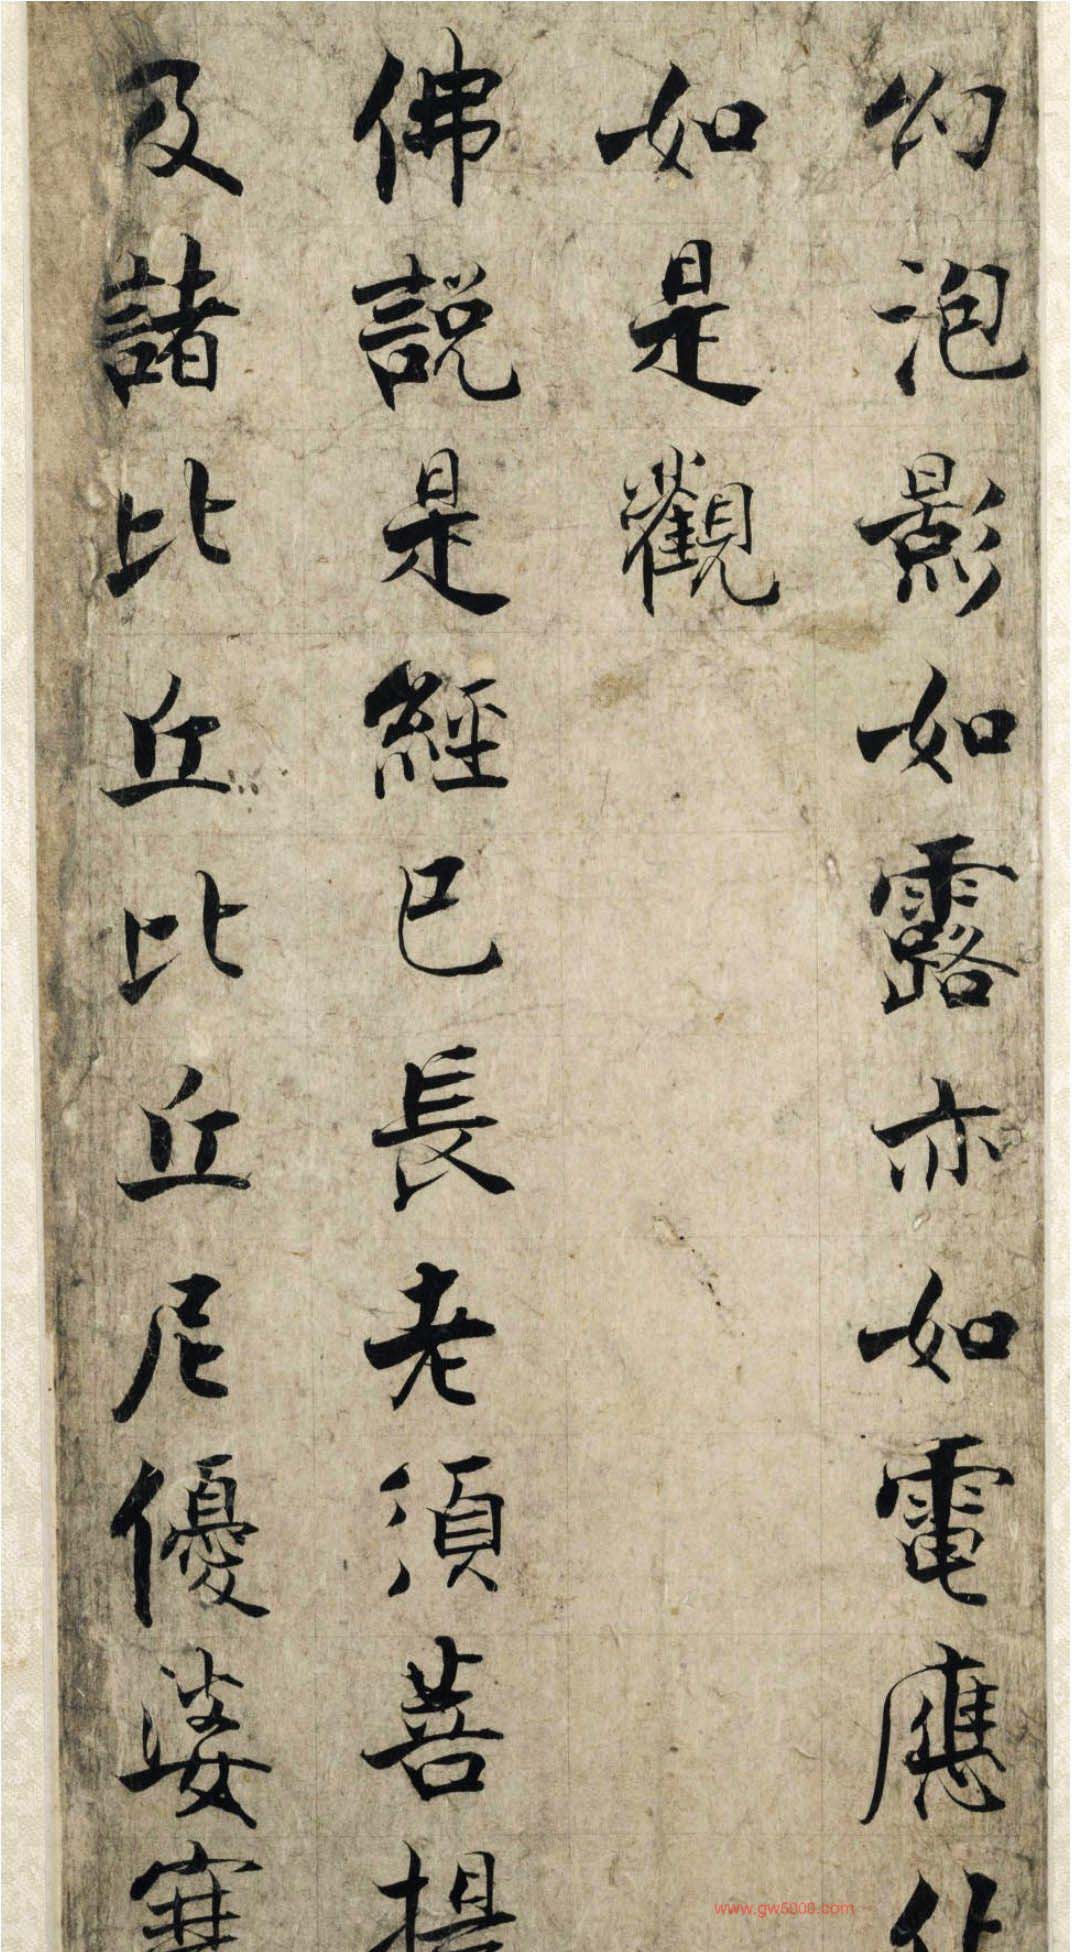 幻泡影如露亦如電應作
如是觀
佛説是經已長老須菩提
及諸比丘比丘尼優婆塞
www.gw5000.com